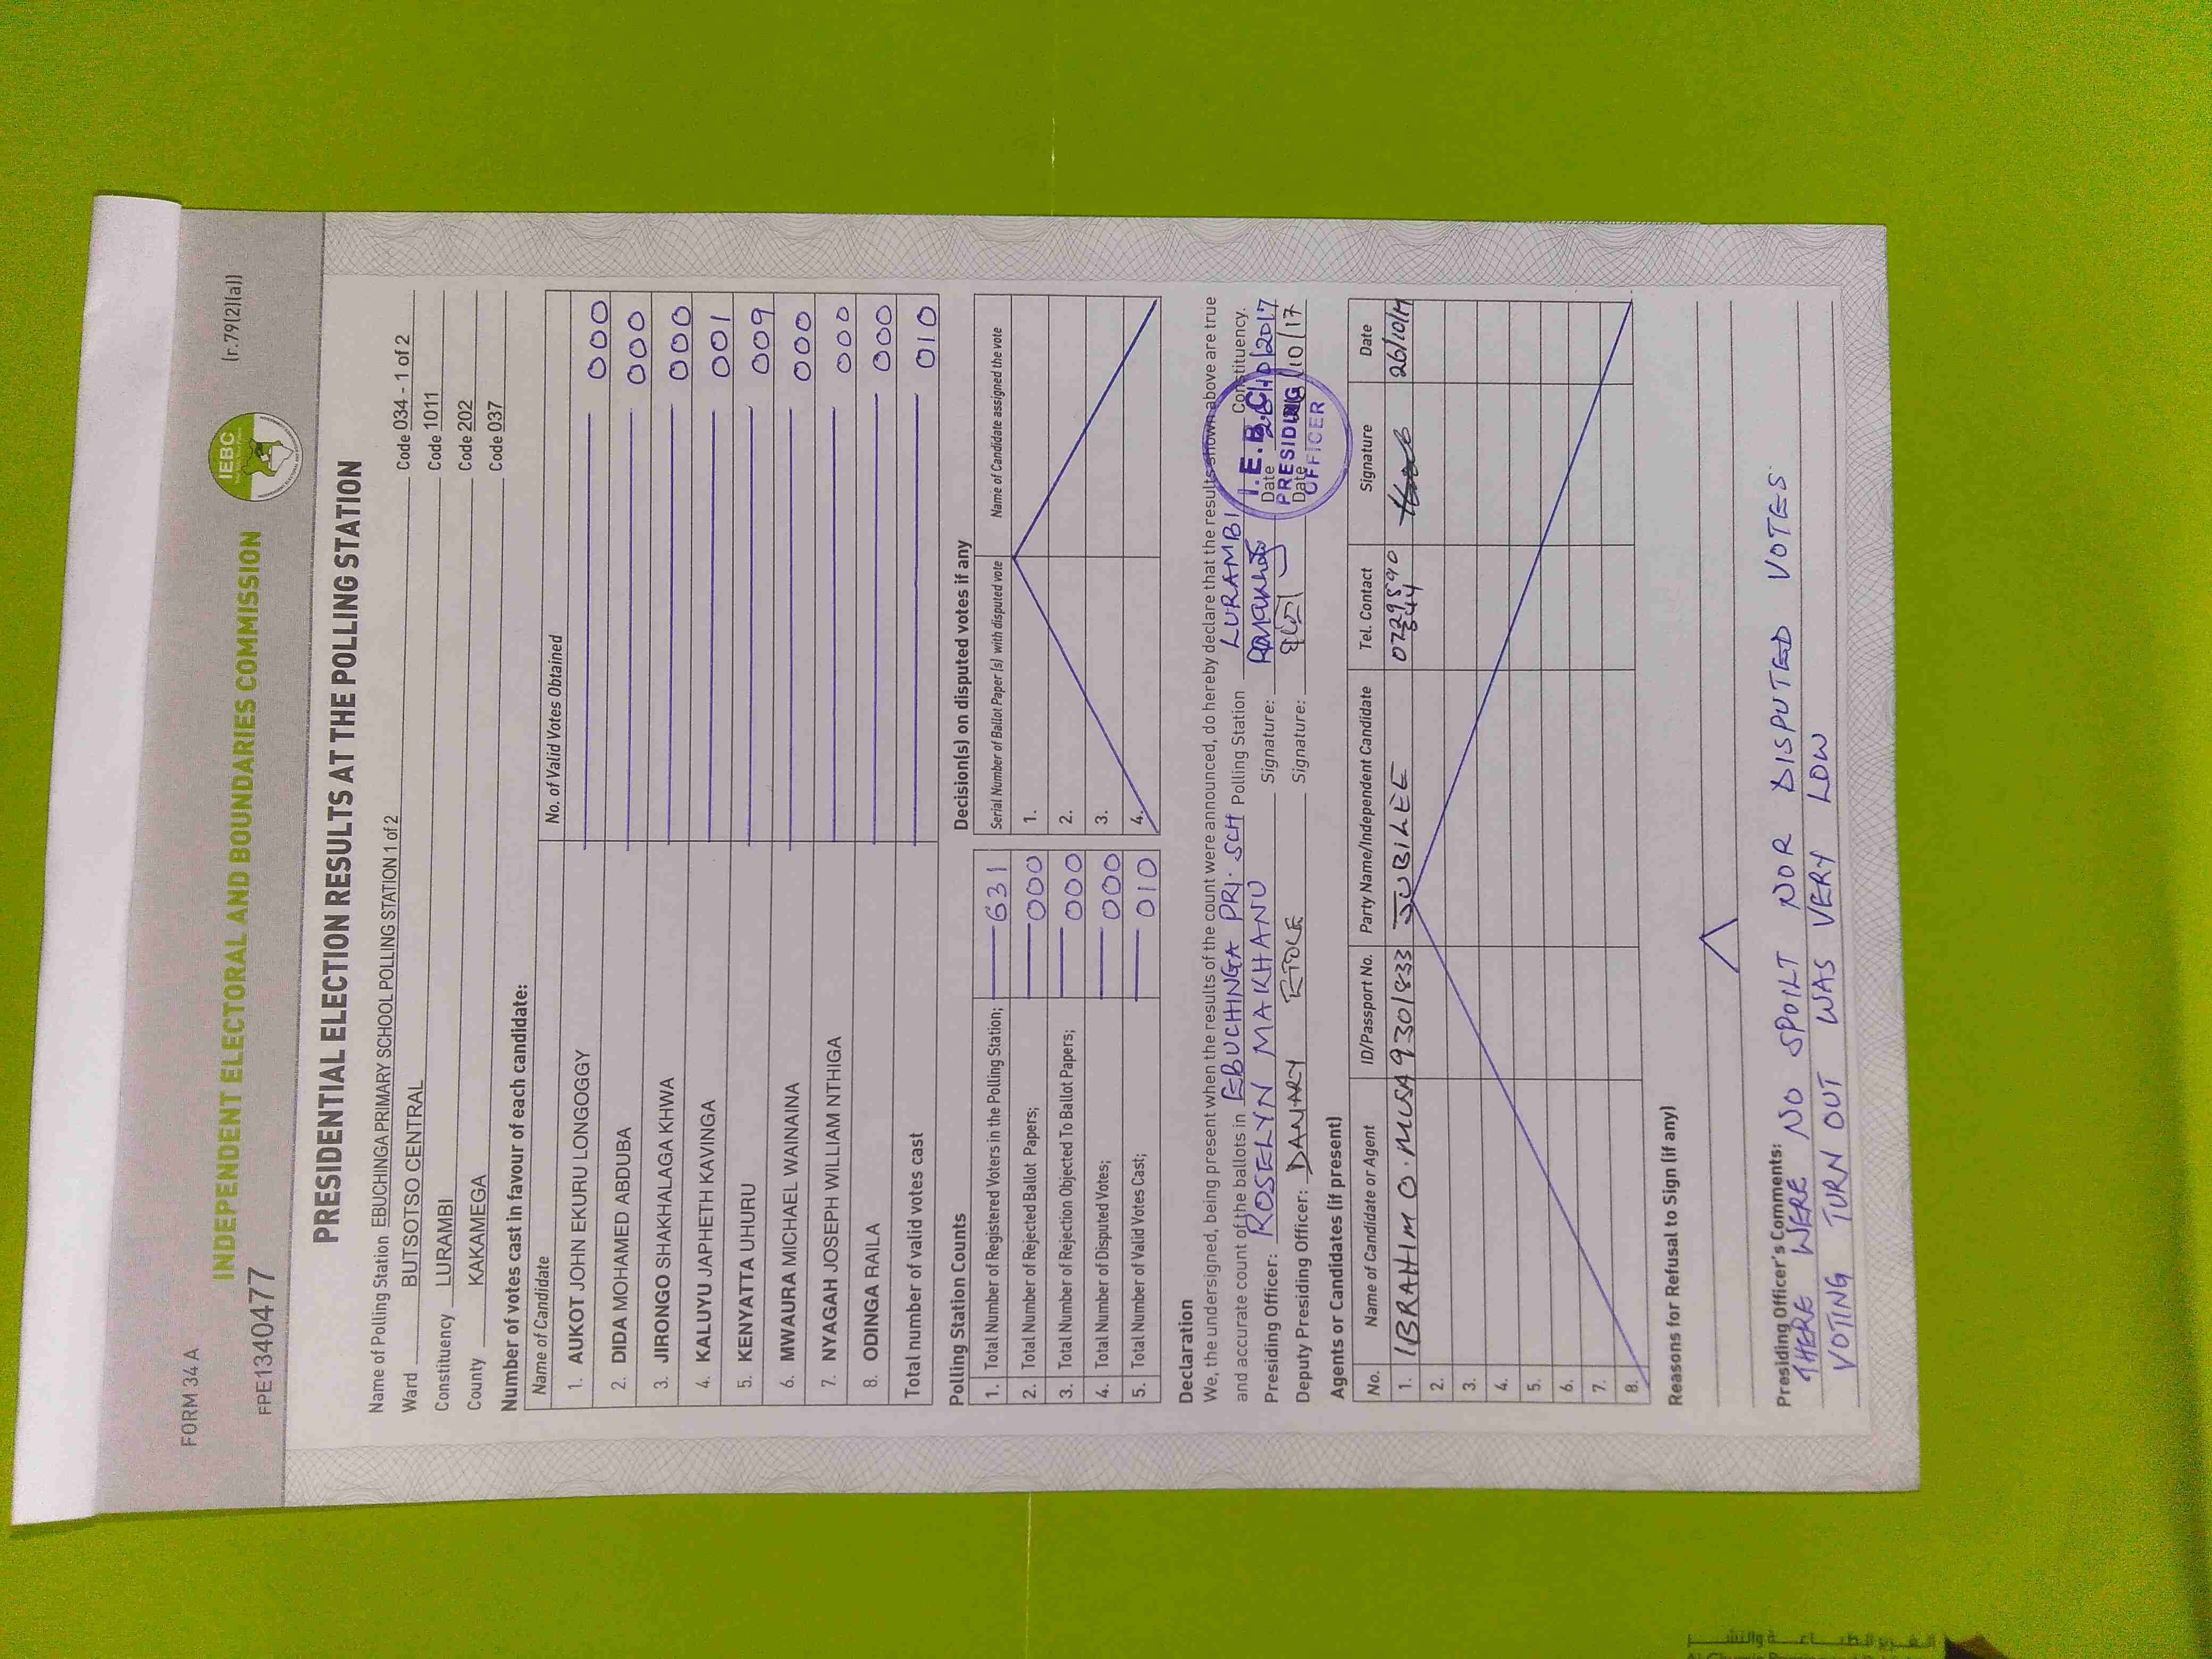 FORM 34 A
(r.79(2)(a))
IEBC
INDEPENDENT ELECTORAL AND BOUNDARIES COMMISSION
FPE1340477
PRESIDENTIAL ELECTION RESULTS AT THE POLLING STATION
Name of Polling Station EBUCHINGA PRIMARY SCHOOL POLLING STATION 1 of 2 Code 034 - 1 of 2
Ward BUTSOTSO CENTRAL Code 1011
Constituency LURAMBI Code 202
County KAKAMEGA Code 037
Number of votes cast in favour of each candidate:
Name of Candidate No. of Valid Votes Obtained
1. AUKOT JOHN EKURU LONGOGGY 000
2. DIDA MOHAMED ABDUBA 000
3. JIRONGO SHAKHALAGA KHWA 000
4. KALUYU JAPHETH KAVINGA 001
5. KENYATTA UHURU 009
6. MWAURA MICHAEL WAINAINA 000
7. NYAGAH JOSEPH WILLIAM NTHIGA 000
8. ODINGA RAILA 000
Total number of valid votes cast 010
Polling Station Counts
1. Total Number of Registered Voters in the Polling Station; 631
2. Total Number of Rejected Ballot Papers; 000
3. Total Number of Rejection Objected To Ballot Papers; 000
4. Total Number of Disputed Votes; 000
5. Total Number of Valid Votes Cast; 010
Decision(s) on disputed votes if any
Serial Number of Ballot Paper (s) with disputed vote Name of Candidate assigned the vote
1.
2.
3.
4.
Declaration
We, the undersigned, being present when the results of the count were announced, do hereby declare that the results shown above are true
and accurate count of the ballots in EBUCHNGA PRI. SCH Polling Station LURAMBI Constituency.
Presiding Officer: ROSELYN MAKHANU Signature: Date 26/10/2017
Deputy Presiding Officer: DANARY ETOLE Signature: Date /10/17
I.E.B.C
PRESIDING
OFFICER
Agents or Candidates (if present)
No. Name of Candidate or Agent ID/Passport No. Party Name/Independent Candidate Tel. Contact Signature Date
1. IBRAHIM O. MUSA 9301833 JUBILEE 26/10/17
2.
3.
4.
5.
6.
7.
8.
Reasons for Refusal to Sign (if any)
Presiding Officer's Comments:
THERE WERE NO SPOILT NOR DISPUTED VOTES
VOTING TURN OUT WAS VERY LOW